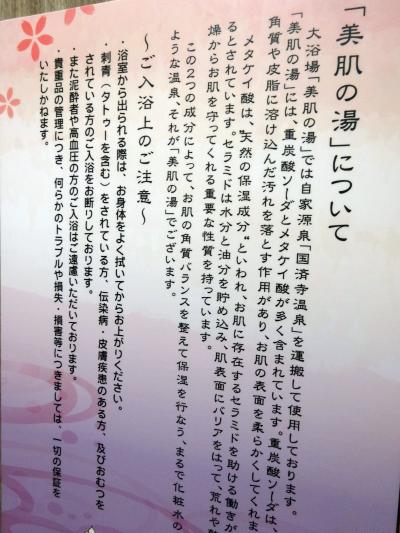 「美肌の湯」について
大浴場「美肌の湯」では自家源泉「国済寺温泉」を運搬して使用しております。
「美肌の湯」には、重炭酸ソーダとメタケイ酸が多く含まれています。重炭酸ソーダは、
角質や皮脂に溶け込んだ汚れを落とす作用があり、お肌の表面を柔らかくしてくれま
メタケイ酸は、“天然の保湿成分”といわれ、お肌に存在するセラミドを助ける働きが
るとされています。セラミドは水分と油分を貯め込み、肌表面にバリアをはって、荒れや
燥からお肌を守ってくれる重要な性質を持っています。
この2つの成分によって、お肌の角質バランスを整えて保湿を行なう、まるで化粧水の
ような温泉、それが「美肌の湯」でございます。
～ご入浴上のご注意～
・浴室から出られる際は、お身体をよく拭いてからお上がりください。
・刺青（タトゥーを含む）をされている方、伝染病・皮膚疾患のある方、及びおむつを
されている方のご入浴をお断りしております。
・また泥酔者や高血圧の方のご入浴はご遠慮いただいております。
・貴重品の管理につき、何らかのトラブルや損失・損害等につきましては、一切の保証を
いたしかねます。